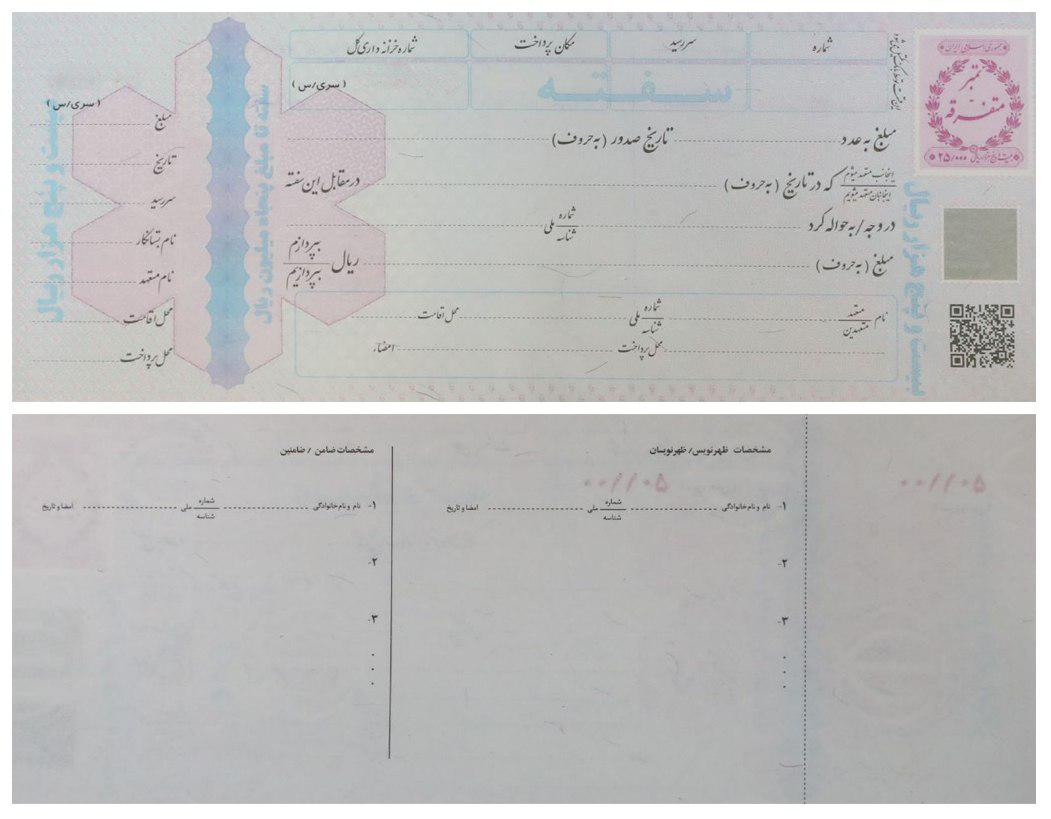 شماره
سررسید
مکان پرداخت
شماره خزانه داری کل
سفته
(سری/س)
مبلغ به عدد
تاریخ صدور (به حروف)
اینجانب متعهد میشوم
اینجانبان متعهد میشویم
که در تاریخ (به حروف)
در مقابل این سفته
در وجه / به حواله کرد
شماره
شناسه
ملی
مبلغ (به حروف)
ریال
بپردازم
بپردازیم
نام
متعهد
متعهدین
شماره
شناسه
ملی
محل اقامت
محل پرداخت
امضاء
جمهوری اسلامی ایران
تمبر
متفرقه
۲۵/۰۰۰
بیست و پنج هزار ریال
سفته تا مبلغ پنجاه میلیون ریال
بیست و پنج هزار ریال
(سری/س)
مبلغ
تاریخ
سررسید
نام بستانکار
نام متعهد
محل اقامت
محل پرداخت
مشخصات ظهرنویس/ ظهرنویسان
۱- نام و نام خانوادگی شماره ملی امضا و تاریخ
شناسه
۲-
۳-
مشخصات ضامن / ضامنین
۱- نام و نام خانوادگی شماره ملی امضا و تاریخ
شناسه
۲-
۳-